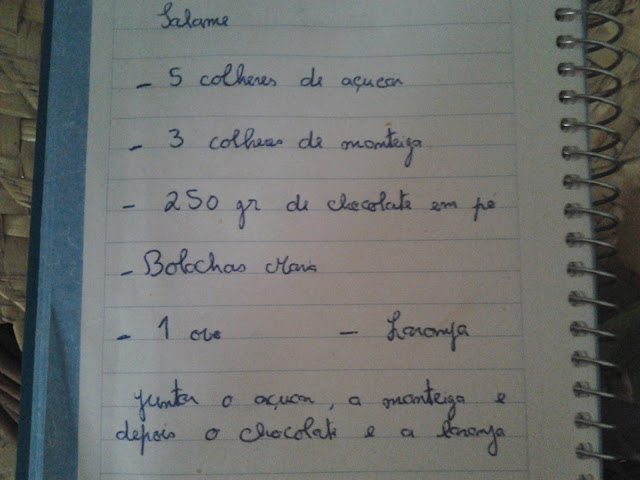 Salame
- 5 colheres de açucar
- 3 colheres de manteiga
- 250 gr de chocolate em pó
- Bolachas Maria
- 1 ovo - Laranja
Juntar o açucar, a manteiga e
depois o chocolate e a laranja